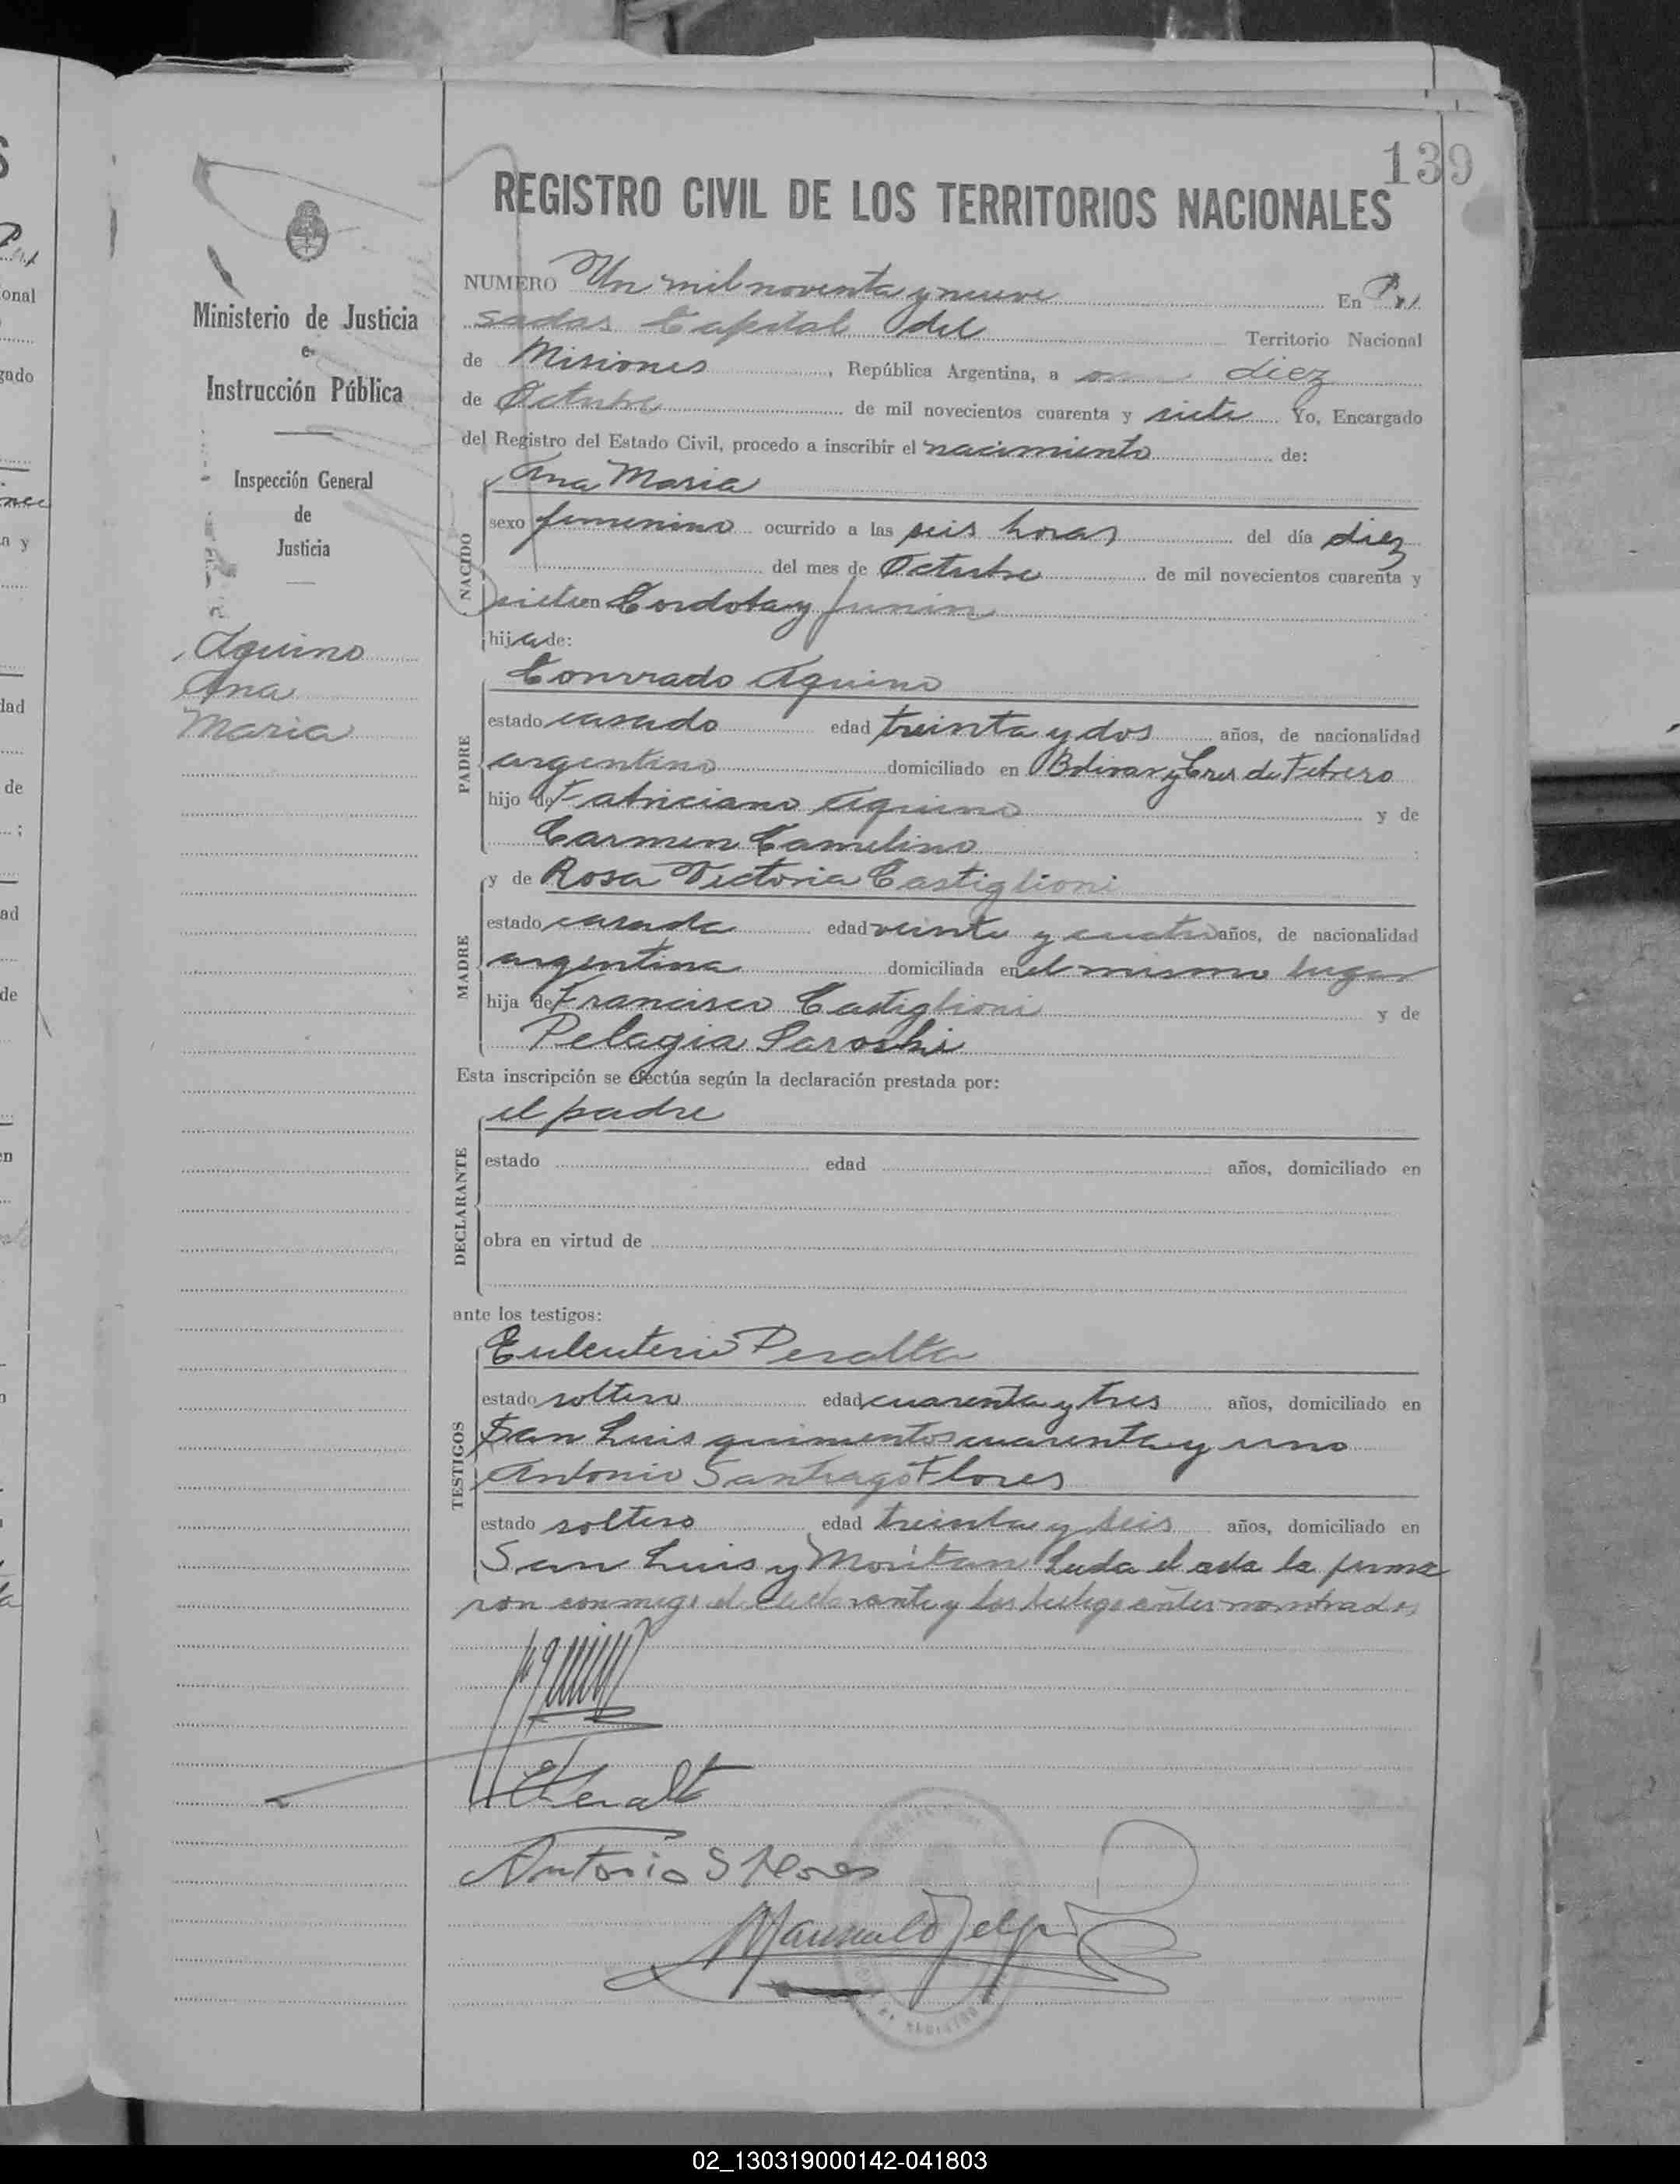 139
REGISTRO CIVIL DE LOS TERRITORIOS NACIONALES
Ministerio de Justicia
e
Instrucción Pública
Inspección General
de
Justicia
Aquino
Ana
Maria
NUMERO Un mil noventa y nueve En Po
sadas Capital del Territorio Nacional
de Misiones, República Argentina, a diez
de Octubre de mil novecientos cuarenta y siete Yo, Encargado
del Registro del Estado Civil, procedo a inscribir el nacimiento de:
NACIDO
Ana Maria
sexo femenino ocurrido a las seis horas del día diez
del mes de Octubre de mil novecientos cuarenta y
siete en Cordoba y Junin
hija de:
PADRE
Conrrado Aquino
estado casado edad treinta y dos años, de nacionalidad
argentino domiciliado en Bolivar y Tres de Febrero
hijo de Fabriciano Aquino y de
Carmen Camelino
MADRE
y de Rosa Victoria Castiglioni
estado casada edad veinte y cuatro años, de nacionalidad
argentina domiciliada en el mismo lugar
hija de Francisco Castiglioni y de
Pelagia
Esta inscripción se efectúa según la declaración prestada por:
DECLARANTE
el padre
estado edad años, domiciliado en
obra en virtud de
ante los testigos:
TESTIGOS
Euleuterio Peralta
estado soltero edad cuarenta y tres años, domiciliado en
San Luis quinientos cuarenta y uno
Antonio Santiago Flores
estado soltero edad treinta y seis años, domiciliado en
San Luis y Moritan Leida el acta la firma
ron conmigo el declarante y los testigos antes nombrados
EPeralta
Antonio S Flores
02_130319000142-041803